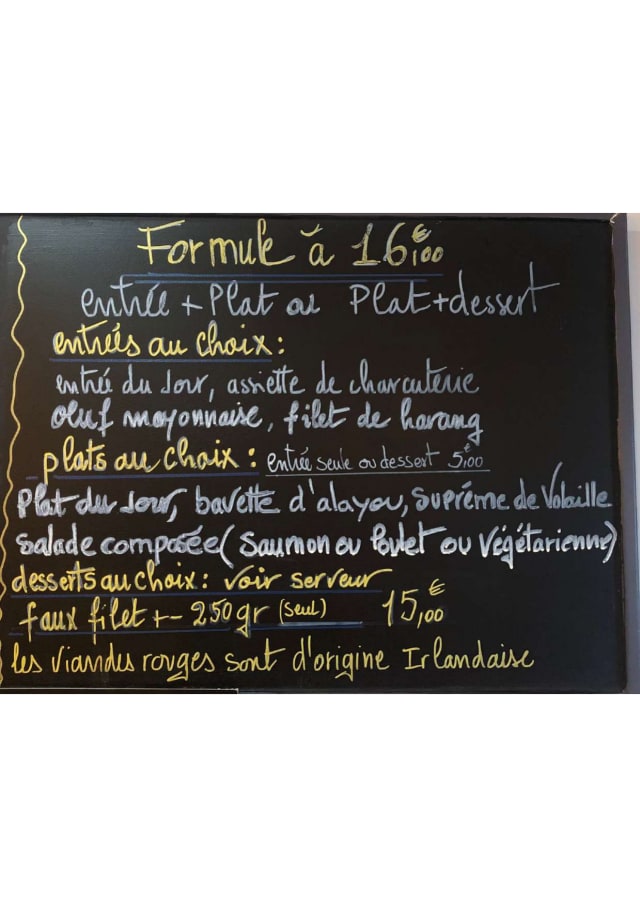 Formule à 16€,00
entrée + Plat ou Plat + dessert
entrées au choix :
entrée du Jour, assiette de charcuterie
œuf mayonnaise, filet de harang
plats au choix : entrée seule ou dessert 5€,00
Plat du Jour, bavette d'alayou, Suprême de Volaille
Salade composée ( Saumon ou Poulet ou Végétarienne)
desserts au choix : voir serveur
faux filet +- 250 gr (seul) 15,00€
les viandes rouges sont d'origine Irlandaise